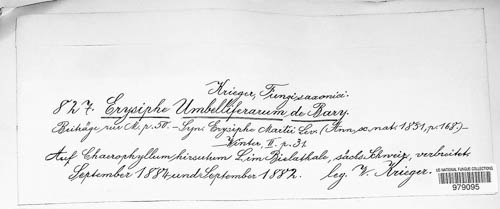 Krieger, Fungi saxonici.
827. Erysiphe Umbelliferarum de Bary.
Beiträge zur M. p. 50. – Syn: Erysiphe Martii Lev. (Ann. sc. nat. 1851, p. 168.) –
Winter, II. p. 31.
Auf Chaerophyllum hirsutum L. im Bielathale, sächs. Schweiz, verbreitet.
September 1884 und September 1882. leg. W. Krieger.
US NATIONAL FUNGUS COLLECTIONS
979095